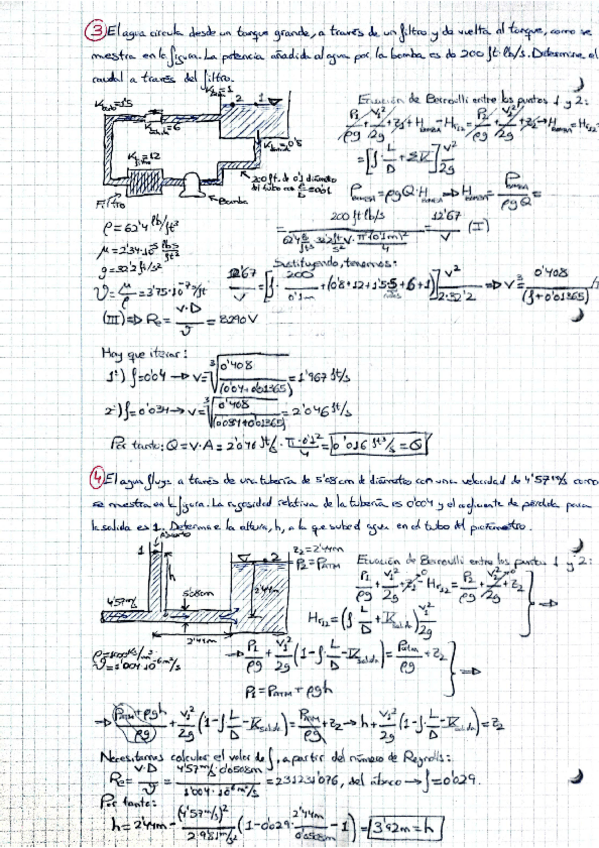 ③ El agua circula desde un tanque grande, a través de un filtro y de vuelta al tanque, como se
muestra en la figura. La potencia añadida al agua por la bomba es de 200 ft·lb/s. Determine el
caudal a través del filtro.
Kcodo=1'5
Kent=1
2 1
Kválvula=6
Kfiltro=12
Kentrada=0'8
200 ft. de 0'1 diámetro
del tubo con ε/D=0'01
Filtro
Bomba
Ecuación de Bernoulli entre los puntos 1 y 2:
P1/ρg + V1²/2g + Z1 + Hbomba - Hr12 = P2/ρg + V2²/2g + Z2 → Hbomba = Hr12
= [f·L/D + ΣK] V²/2g
Pbomba = ρgQ·Hbomba ⇒ Hbomba = P/ρgQ =
= 200 ft·lb/s / (62'4 · 32'2 ft/s² · V · π·(0'1m)²/4) = 12'67/V (I)
ρ=62'4 lb/ft³
μ=2'34·10⁻⁵ lb·s/ft²
g=32'2 ft/s²
ϑ=μ/ρ=3'75·10⁻⁷/ft
(III)⇒ Re=V·D/ϑ=8290V
Sustituyendo, tenemos:
12'67/V=[f·200/0'1m+(0'8+12+1'5·5+6+1)]V²/2·32'2 ⇒ V³=0'408/(f+0'01365)
Hay que iterar:
1º) f=0'04 → V=³√0'408/(0'04+0'01365)=1'967 ft/s
2º) f=0'034 → V=³√0'408/(0'034+0'01365)=2'046 ft/s
Por tanto: Q=V·A=2'046 ft/s·π·0'1²/4=0'016 ft³/s=Q
④ El agua fluye a través de una tubería de 5'08 cm de diámetro con una velocidad de 4'57 m/s como
se muestra en la figura. La rugosidad relativa de la tubería es 0'004 y el coeficiente de pérdida para
la salida es 1. Determine la altura, h, a la que sube el agua en el tubo del piezómetro.
Abierto
1
h
2
Z2=2'44m
P2=PATM
2'44m
4'57m/s
5'08cm
2'44m
ρ=1000Kg/m³
ϑ=1'004·10⁻⁶m²/s
Ecuación de Bernoulli entre los puntos 1 y 2:
P1/ρg + V1²/2g + Z1 - Hr12 = P2/ρg + V2²/2g + Z2
Hr12=(f L/D + Ksalida) V1²/2g
→ P1/ρg + V1²/2g (1-f·L/D-Ksalida)=Patm/ρg+Z2
P1=PATM+ρgh
⇒ PATM+ρgh/ρg + V1²/2g (1-f·L/D-Ksalida)=PATM/ρg+Z2 → h+V1²/2g (1-f·L/D-Ksalida)=Z2
Necesitamos calcular el valor de f, a partir del número de Reynolds:
Re=V·D/ϑ=4'57m/s·0'0508m/1'004·10⁻⁶m²/s=231231'076, del ábaco → f=0'029.
Por tanto:
h=2'44m-(4'57m/s)²/2·9'81m/s² (1-0'029·2'44m/0'0508m-1)=3'92m=h